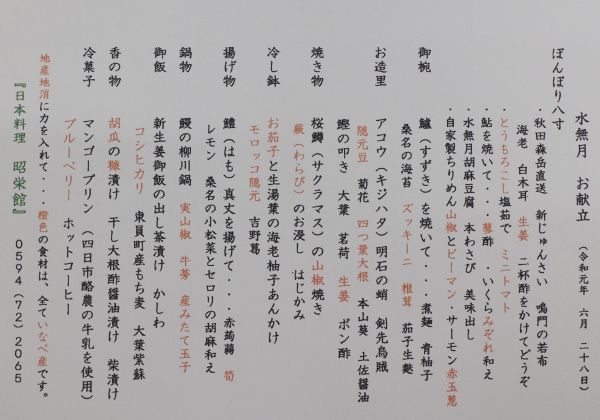 水無月　お献立　（令和元年　六月　二十八日）
ぼんぼり八寸
・秋田森岳直送　新じゅんさい　鳴門の若布
海老　白木耳　生姜　二杯酢をかけてどうぞ
・とうもろこし塩茹で　ミニトマト
・鮎を焼いて・・・蓼酢　・いくらみぞれ和え
・水無月胡麻豆腐　本わさび　美味出し
・自家製ちりめん山椒とピーマン・サーモン赤玉葱
御椀　鱸（すずき）を焼いて・・・煮麺　青柚子
桑名の海苔　ズッキーニ　椎茸　茄子生麩
お造里　アコウ（キジハタ）明石の蛸　剣先烏賊
隠元豆　菊花　四つ葉大根　本山葵　土佐醤油
鰹の叩き　大葉　茗荷　生姜　ポン酢
焼き物　桜鱒（サクラマス）の山椒焼き
蕨（わらび）のお浸し　はじかみ
冷し鉢　お茄子と生湯葉の海老柚子あんかけ
モロッコ隠元　吉野葛
揚げ物　鱧（はも）真丈を揚げて・・・・赤蒟蒻　筍
レモン　桑名の小松菜とセロリの胡麻和え
鍋物　鰻の柳川鍋　実山椒　牛蒡　産みたて玉子
御飯　新生姜御飯の出し茶漬け　かしわ
コシヒカリ　東員町産もち麦　大葉紫蘇
香の物　胡瓜の糠漬け　干し大根酢醤油漬け　柴漬け
冷菓子　マンゴープリン　（四日市酪農の牛乳を使用）
ブルーベリー　ホットコーヒー
地産地消に力を入れて・・・橙色の食材は、全ていなべ産です。
『日本料理　昭栄館』　０５９４（７２）２０６５